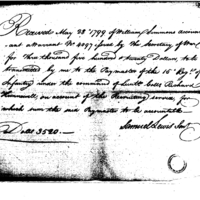 Received May 28th 1799 of William Simmons accoun-
-ant a Warrant No. 4297, issued by the Secretary of War
for Three thousand five hundred & twenty Dollars, to be
transmitted by me to the Paymaster of the 15th Regt. of
Infantry under the command of Lieutt. Colo. Richard
Hunewell, on account of the Recruiting service, for
which sum the said Paymaster to be accountable
Samuel Lewis Sent.
Dolls 3520.—